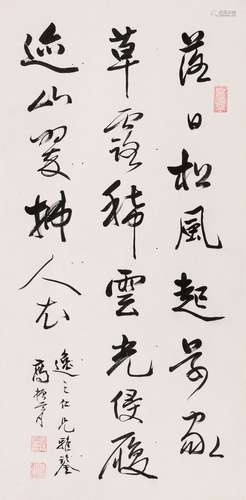 落日松風起還家
草露稀雲光侵履
迹山翠拂人衣
逸之仁兄雅鑒